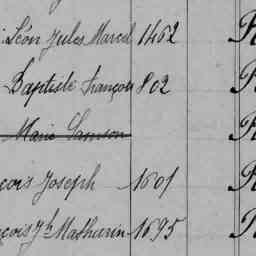 Léon Jules Marcel 1462
Baptiste François 802
Marie Samson
çois Joseph 1601
çois Jh Mathurin 1695